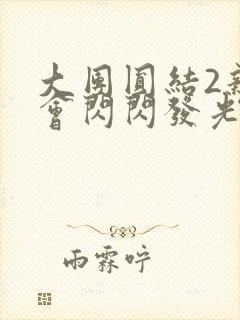 大團圓結2
會閃閃發光
雨霖咛